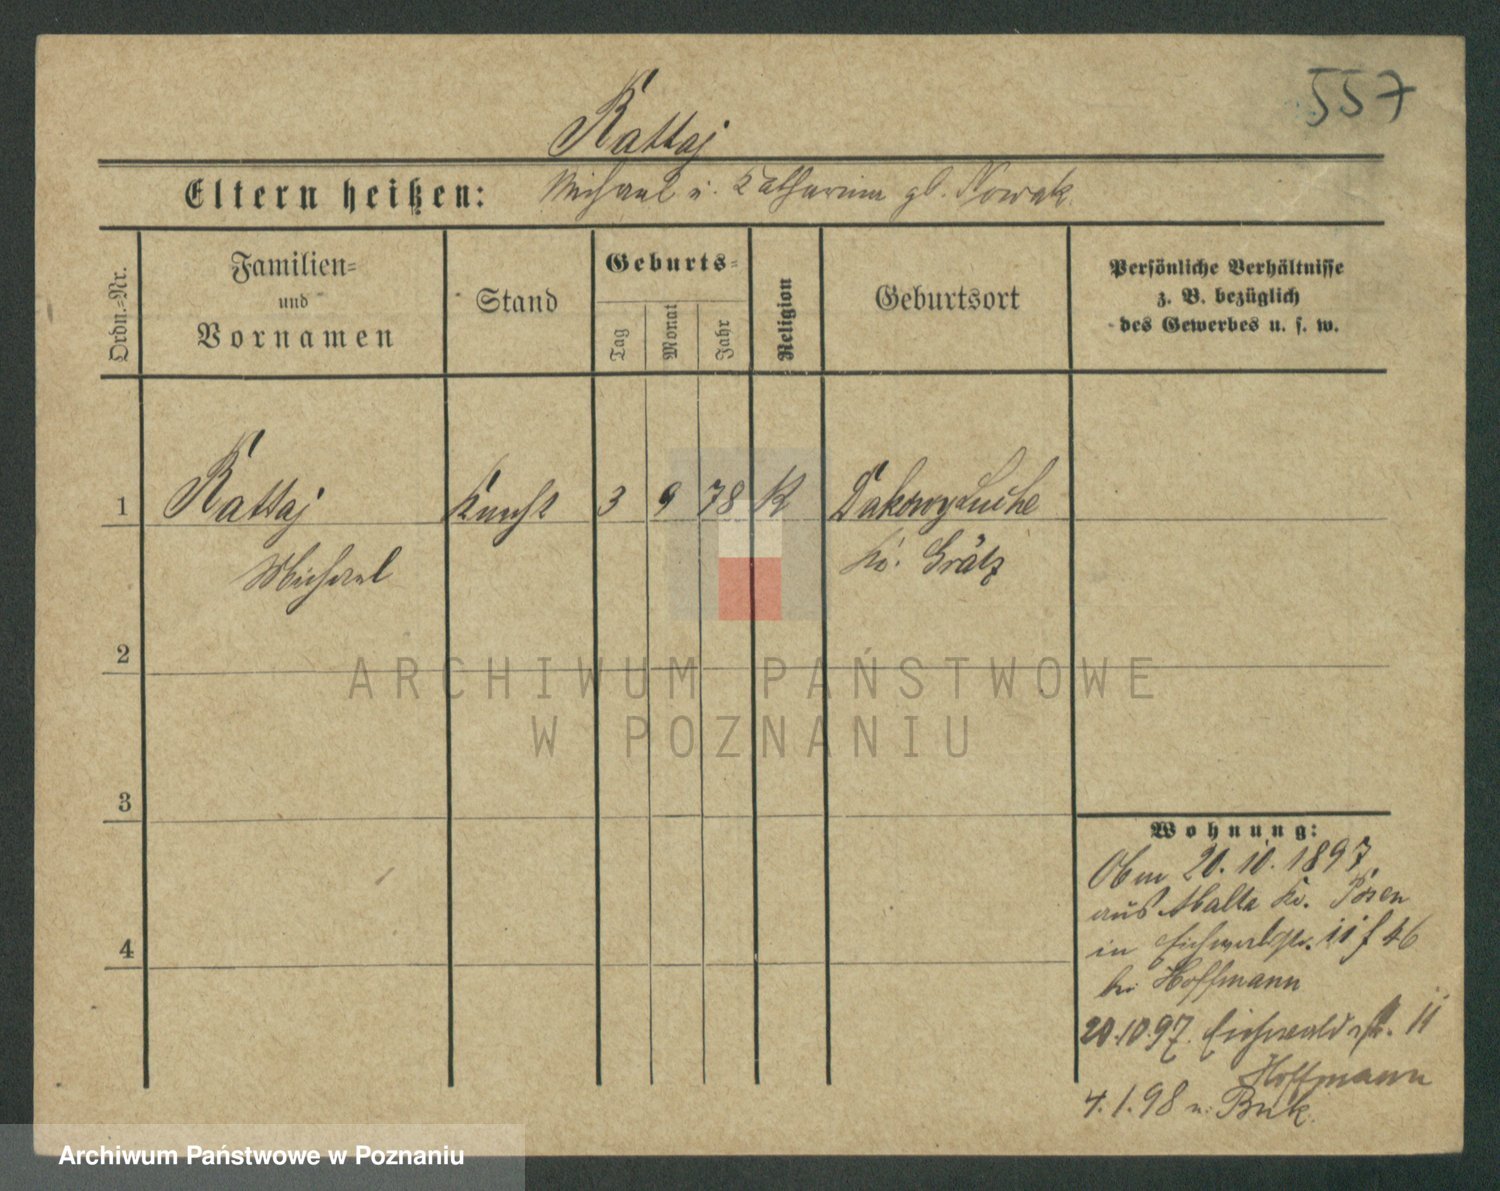 557
Rattaj
Eltern heißen: Michael u. Catharina gb. Nowak
Ordn.-Nr.
Familien-
und
Vornamen
Stand
Geburts-
Tag
Monat
Jahr
Religion
Geburtsort
Persönliche Verhältnisse
z. B. bezüglich
des Gewerbes u. s. w.
1 Rattaj Knecht 3 9 78 K Dakowysuche
Michael Kr. Grätz
2
3
4
Wohnung:
20. 10. 1897
aus Malta Kr. Posen
in 11 46
bei Hoffmann
20.10.97. Eichwaldstr. 11
Hoffmann
4.1.98 n. Buk.
ARCHIWUM PAŃSTWOWE
W POZNANIU
Archiwum Państwowe w Poznaniu